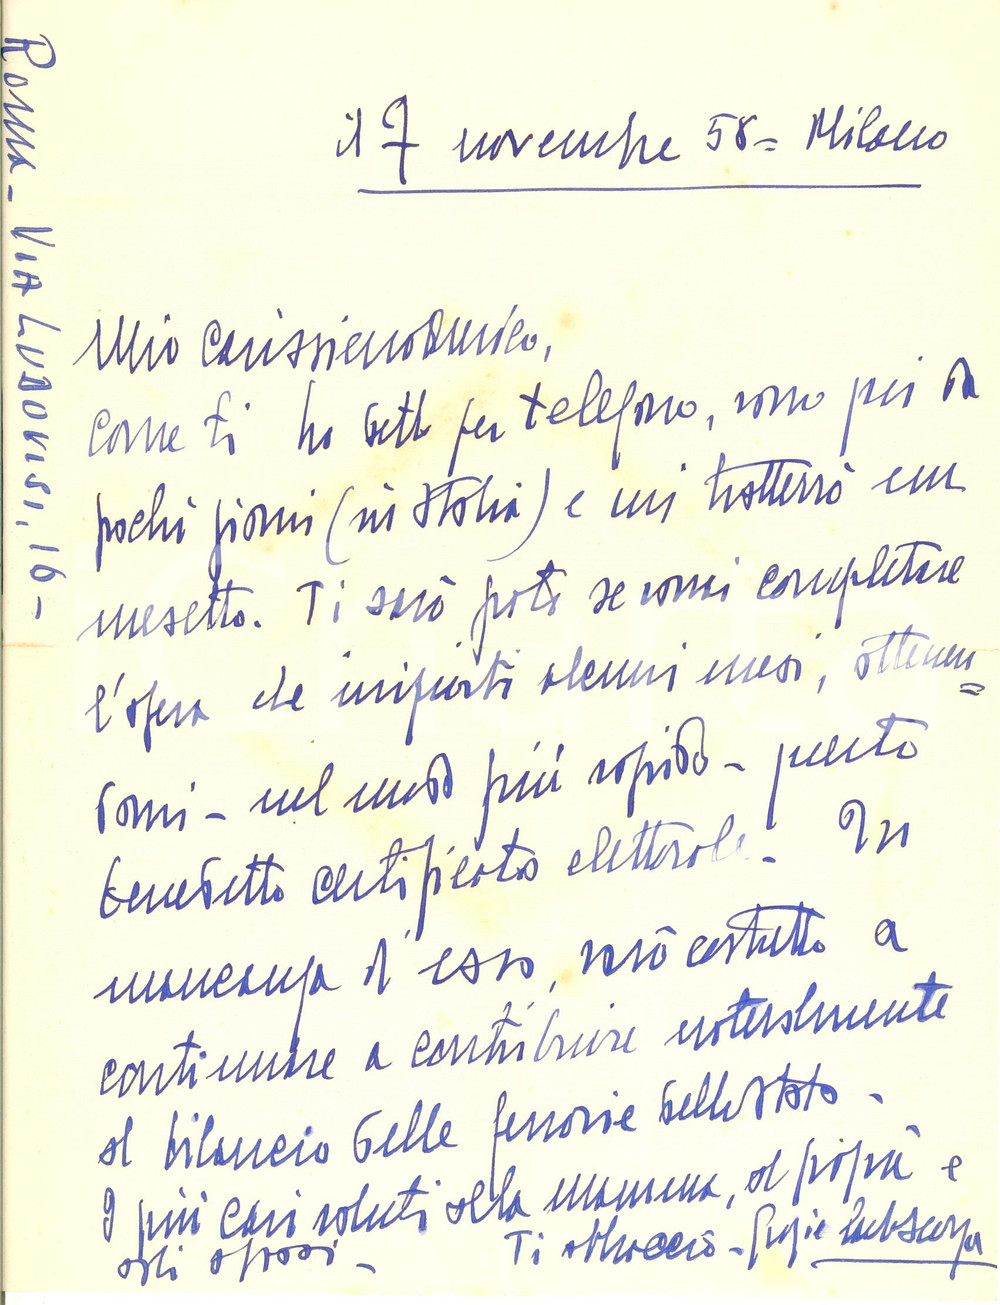 Roma - Via Ludovisi, 16 -
il 7 novembre 58 = Milano
Mio carissimo Amico,
come ti ho detto per telefono, sono qui da
pochi giorni (in Italia) e mi tratterrò un
mesetto. Ti sarò grato se vorrai completare
l'opera che iniziasti alcuni mesi, ottenen=
domi - nel modo più rapido - questo
benedetto certificato elettorale. In
mancanza d'esso, sarò costretto a
continuare a contribuire notevolmente
al bilancio delle ferrovie dello Stato -
I più cari saluti alla mamma, al papà e
agli sposi - Ti abbraccio - Grazie